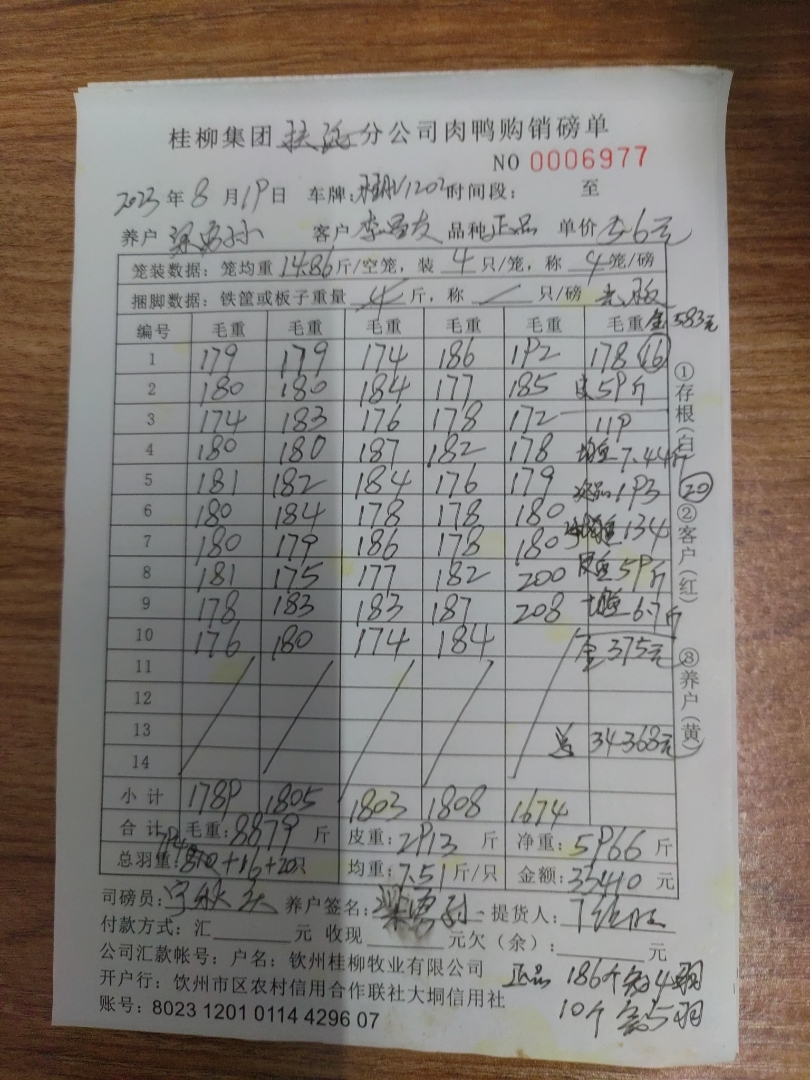 桂柳集团 分公司肉鸭购销磅单
NO 0006977
2023 年 8 月 19 日 车牌: 1202 时间段: 至
养户 客户 李昌友 品种 正品 单价 5.6元
笼装数据: 笼均重 14.86 斤/空笼, 装 4 只/笼, 称 4 笼/磅
捆脚数据: 铁筐或板子重量 斤, 称 只/磅
编号 毛重 毛重 毛重 毛重 毛重 毛重 金583元
1 179 179 174 186 192 178 (16)
2 180 180 184 177 185 皮59斤
3 174 183 176 178 172 119
4 180 180 187 182 178 均重7.44斤
5 181 182 184 176 179 次品193 (20)
6 180 184 178 178 180
7 180 179 186 178 180 134
8 181 175 177 182 200 皮重59斤
9 178 183 183 187 208 均重6.7斤
10 176 180 174 184 金375元
11
12
13 总 34368元
14
小计 1789 1805 1803 1808 1674
合计 毛重: 8879 斤 皮重: 2913 斤 净重: 5966 斤
总羽重: +16+20只 均重: 7.51 斤/只 金额: 33410 元
司磅员: 养户签名: 提货人:
付款方式: 汇 元 收现 元欠(余): 元
公司汇款帐号: 户名: 钦州桂柳牧业有限公司
开户行: 钦州市区农村信用合作联社大垌信用社
账号: 8023 1201 0114 4296 07
正品 186个 4羽
10个 5羽
①存根(白) ②客户(红) ③养户(黄)